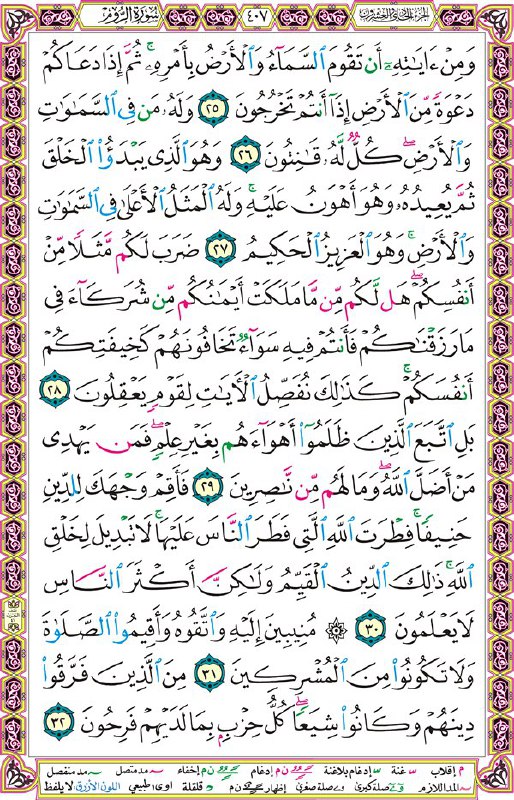 الجزء الحادي والعشرون ٤٠٧ سورة الروم
وَمِنْ ءَايَٰتِهِۦٓ أَن تَقُومَ ٱلسَّمَآءُ وَٱلْأَرْضُ بِأَمْرِهِۦ ۚ ثُمَّ إِذَا دَعَاكُمْ
دَعْوَةً مِّنَ ٱلْأَرْضِ إِذَآ أَنتُمْ تَخْرُجُونَ ٢٥ وَلَهُۥ مَن فِى ٱلسَّمَٰوَٰتِ
وَٱلْأَرْضِ ۖ كُلٌّ لَّهُۥ قَٰنِتُونَ ٢٦ وَهُوَ ٱلَّذِى يَبْدَؤُا۟ ٱلْخَلْقَ
ثُمَّ يُعِيدُهُۥ وَهُوَ أَهْوَنُ عَلَيْهِ ۚ وَلَهُ ٱلْمَثَلُ ٱلْأَعْلَىٰ فِى ٱلسَّمَٰوَٰتِ
وَٱلْأَرْضِ ۚ وَهُوَ ٱلْعَزِيزُ ٱلْحَكِيمُ ٢٧ ضَرَبَ لَكُم مَّثَلًا مِّنْ
أَنفُسِكُمْ ۖ هَل لَّكُم مِّن مَّا مَلَكَتْ أَيْمَٰنُكُم مِّن شُرَكَآءَ فِى
مَا رَزَقْنَٰكُمْ فَأَنتُمْ فِيهِ سَوَآءٌ تَخَافُونَهُمْ كَخِيفَتِكُمْ
أَنفُسَكُمْ ۚ كَذَٰلِكَ نُفَصِّلُ ٱلْءَايَٰتِ لِقَوْمٍ يَعْقِلُونَ ٢٨
بَلِ ٱتَّبَعَ ٱلَّذِينَ ظَلَمُوٓا۟ أَهْوَآءَهُم بِغَيْرِ عِلْمٍ ۖ فَمَن يَهْدِى
مَنْ أَضَلَّ ٱللَّهُ ۖ وَمَا لَهُم مِّن نَّٰصِرِينَ ٢٩ فَأَقِمْ وَجْهَكَ لِلدِّينِ
حَنِيفًا ۚ فِطْرَتَ ٱللَّهِ ٱلَّتِى فَطَرَ ٱلنَّاسَ عَلَيْهَا ۚ لَا تَبْدِيلَ لِخَلْقِ
ٱللَّهِ ۚ ذَٰلِكَ ٱلدِّينُ ٱلْقَيِّمُ وَلَٰكِنَّ أَكْثَرَ ٱلنَّاسِ
لَا يَعْلَمُونَ ٣٠ ۞ مُنِيبِينَ إِلَيْهِ وَٱتَّقُوهُ وَأَقِيمُوا۟ ٱلصَّلَوٰةَ
وَلَا تَكُونُوا۟ مِنَ ٱلْمُشْرِكِينَ ٣١ مِنَ ٱلَّذِينَ فَرَّقُوا۟
دِينَهُمْ وَكَانُوا۟ شِيَعًا ۖ كُلُّ حِزْبٍۭ بِمَا لَدَيْهِمْ فَرِحُونَ ٣٢
م إقلاب غنة إدغام بلاغنة ن م إدغام ن م إخفاء مد متصل مد منفصل
المد اللازم صلة كبرى صلة صغرى إظهار ن م قلقلة اوى: طبيعي اللون الأزرق لايلفظ